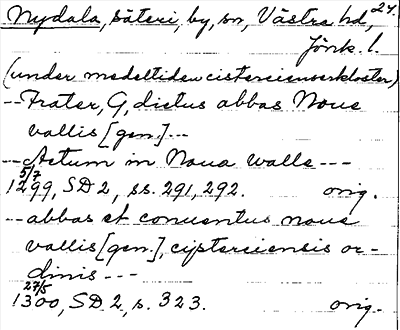 Nydala, säteri, by, sn, Västra hd, 24.
Jönk. l.
(under medeltiden cistercienserkloster)
-- Frater, G, dictus abbas Noue
vallis [gen.] ---
-- Actum in Noua Walle ---
5/7
1299, SD 2, ss. 291, 292. orig.
-- abbas et conuentus noue
vallis [gen.], cysterciensis or-
dinis ---
27/5
1300, SD 2, s. 323. orig.